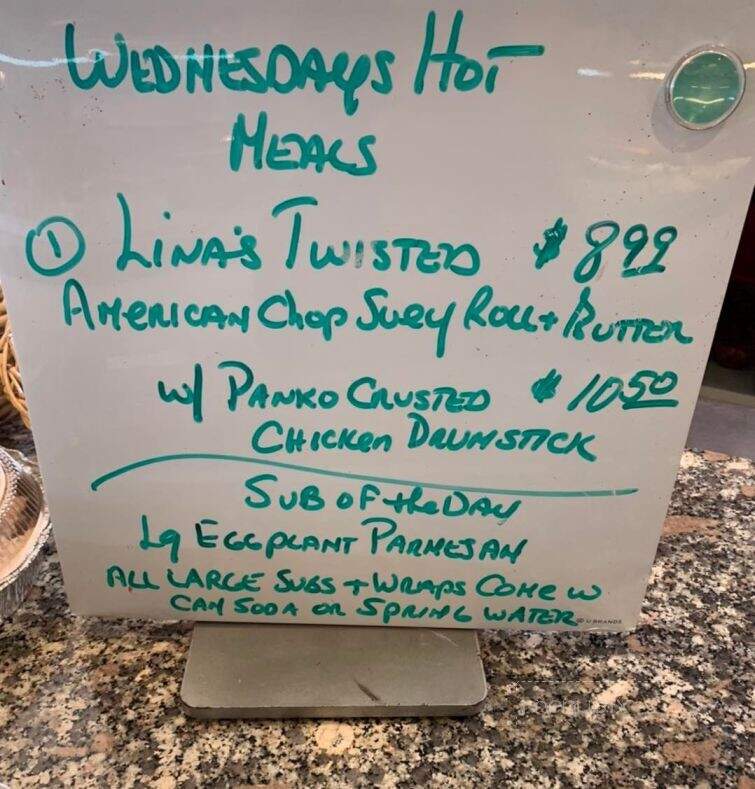 WEDNESDAYS HOT
MEALS
① LINA'S TWISTED $8.99
AMERICAN Chop Suey ROLL + BUTTER
w/ PANKO CRUSTED $10.50
CHICKEN DRUMSTICK
SUB OF the DAY
Lg EGGPLANT PARMESAN
ALL LARGE SUBS + WRAPS COME W
CAN SODA OR SPRING WATER
U BRANDS